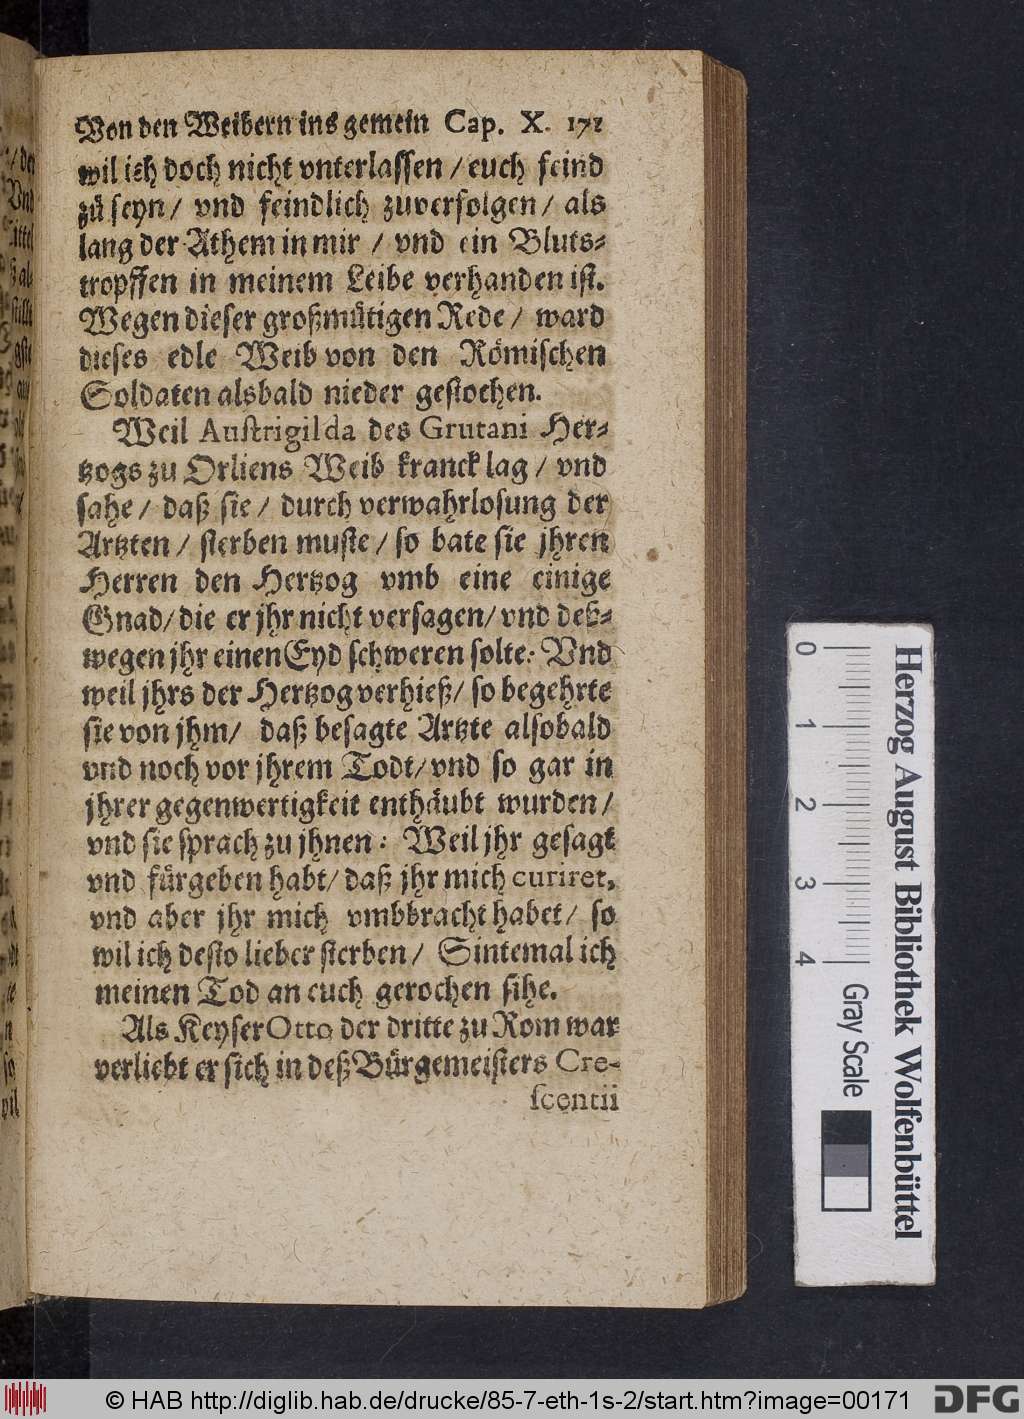 Von den Weibern ins gemein Cap. X. 171
wil ich doch nicht vnterlassen / euch feind
zů seyn / vnd feindlich zuverfolgen / als
lang der Athem in mir / vnd ein Bluts-
tropffen in meinem Leibe verhanden ist.
Wegen dieser großmütigen Rede / ward
dieses edle Weib von den Römischen
Soldaten alsbald nieder gestochen.
Weil Austrigilda des Grutani Her-
tzogs zu Orliens Weib kranck lag / vnd
sahe / daß sie / durch verwahrlosung der
Artzten / sterben muste / so bate sie jhren
Herren den Hertzog vmb eine einige
Gnad / die er jhr nicht versagen / vnd deß-
wegen jhr einen Eyd schweren solte: Vnd
weil jhrs der Hertzog verhieß / so begehrte
sie von jhm / daß besagte Artzte alsobald
vnd noch vor jhrem Todt / vnd so gar in
jhrer gegenwertigkeit enthäubt wurden /
vnd sie sprach zu jhnen: Weil jhr gesagt
vnd fürgeben habt / daß jhr mich curiret,
vnd aber jhr mich vmbbracht habet / so
wil ich desto lieber sterben / Sintemal ich
meinen Tod an euch gerochen sihe.
Als Keyser Otto der dritte zu Rom war
verliebt er sich in deß Bürgemeisters Cre-
scentii
0 1 2 3 4
Gray Scale
Herzog August Bibliothek Wolfenbüttel
© HAB http://diglib.hab.de/drucke/85-7-eth-1s-2/start.htm?image=00171
DFG